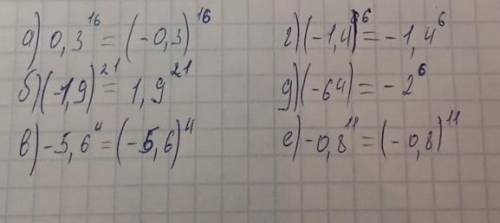 а) 0,3¹⁶ = (-0,3)¹⁶
б) (-1,9)²¹ = 1,9²¹
в) -5,6⁴ = (-5,6)⁴
г) (-1,4)⁶ = -1,4⁶
д) (-64) = -2⁶
е) -0,8¹¹ = (-0,8)¹¹